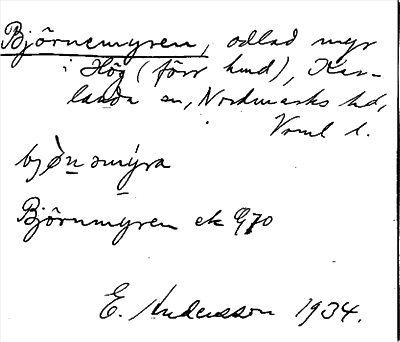 Björnemyren, odlad myr
i Hög (förr hmd), Kar-
landa sn, Nordmarks hd,
Vrml l.
bjø̀n əmýra
Björnmyren ek G70
E. Andersson 1934.